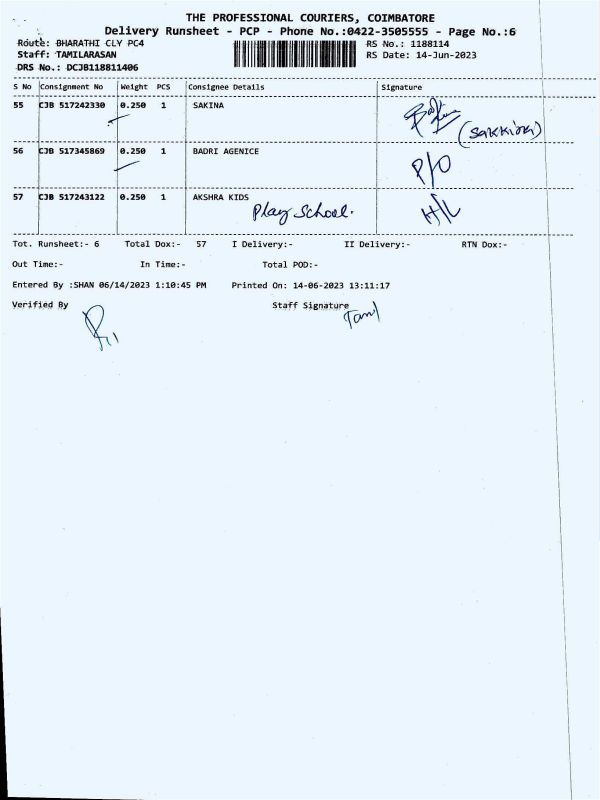 THE PROFESSIONAL COURIERS, COIMBATORE
Delivery Runsheet - PCP - Phone No.:0422-3505555 - Page No.:6
Route: BHARATHI CLY PC4
RS No.: 1188114
Staff: TAMILARASAN
RS Date: 14-Jun-2023
DRS No.: DCJB118811406
S No Consignment No Weight PCS Consignee Details Signature
55 CJB 517242330 0.250 1 SAKINA
(SAKKINA)
56 CJB 517345869 0.250 1 BADRI AGENICE
P/O
57 CJB 517243122 0.250 1 AKSHRA KIDS
Play School.
H/L
Tot. Runsheet:- 6 Total Dox:- 57 I Delivery:- II Delivery:- RTN Dox:-
Out Time:- In Time:- Total POD:-
Entered By :SHAN 06/14/2023 1:10:45 PM Printed On: 14-06-2023 13:11:17
Verified By Staff Signature